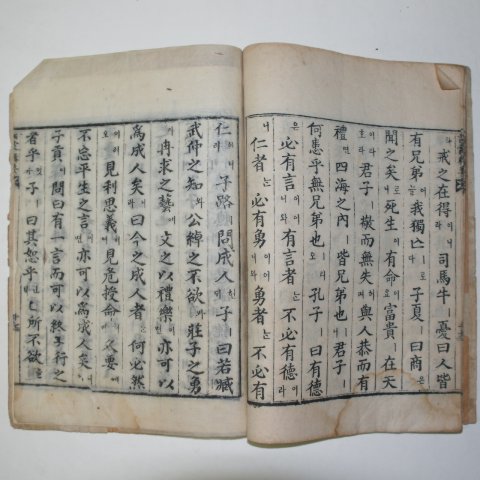 라 戒之在得이니라 司馬牛ㅣ憂曰人皆
有兄弟늘 我獨亡로다 子夏ㅣ曰商은
聞之矣로니 死生이有命이오 富貴ㅣ在天
이라호라 君子ㅣ敬而無失며 與人恭而有
禮면 四海之內ㅣ皆兄弟也ㅣ니 君子ㅣ
何患乎無兄弟也ㅣ리오 孔子ㅣ曰有德
必有言이어니와 有言者는不必有德이니
仁者는必有勇이어니와 勇者는不必有
仁이니라 子路ㅣ問成人대 子ㅣ曰若臧
武仲之知와 公綽之不欲과 莊子之勇
冉求之藝에 文之以禮樂이면 亦可以
爲成人矣니라 曰今之成人者는何必然
이리오 見利思義며 見危授命며 久要애
不忘平生之言이면 亦可以爲成人矣니
子貢이問曰有一言而可以終身行之
者乎잇가 子ㅣ曰其恕乎뎌 己所不欲을